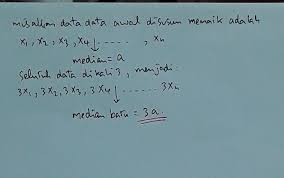 misalkan data data awal disusun menaik adalah
x₁, x₂, x₃, x₄ ↓ ....... , xₙ
median = a
seluruh data dikali 3, menjadi:
3x₁, 3x₂, 3x₃, 3x₄ ↓ ....... 3xₙ
median baru = 3a.